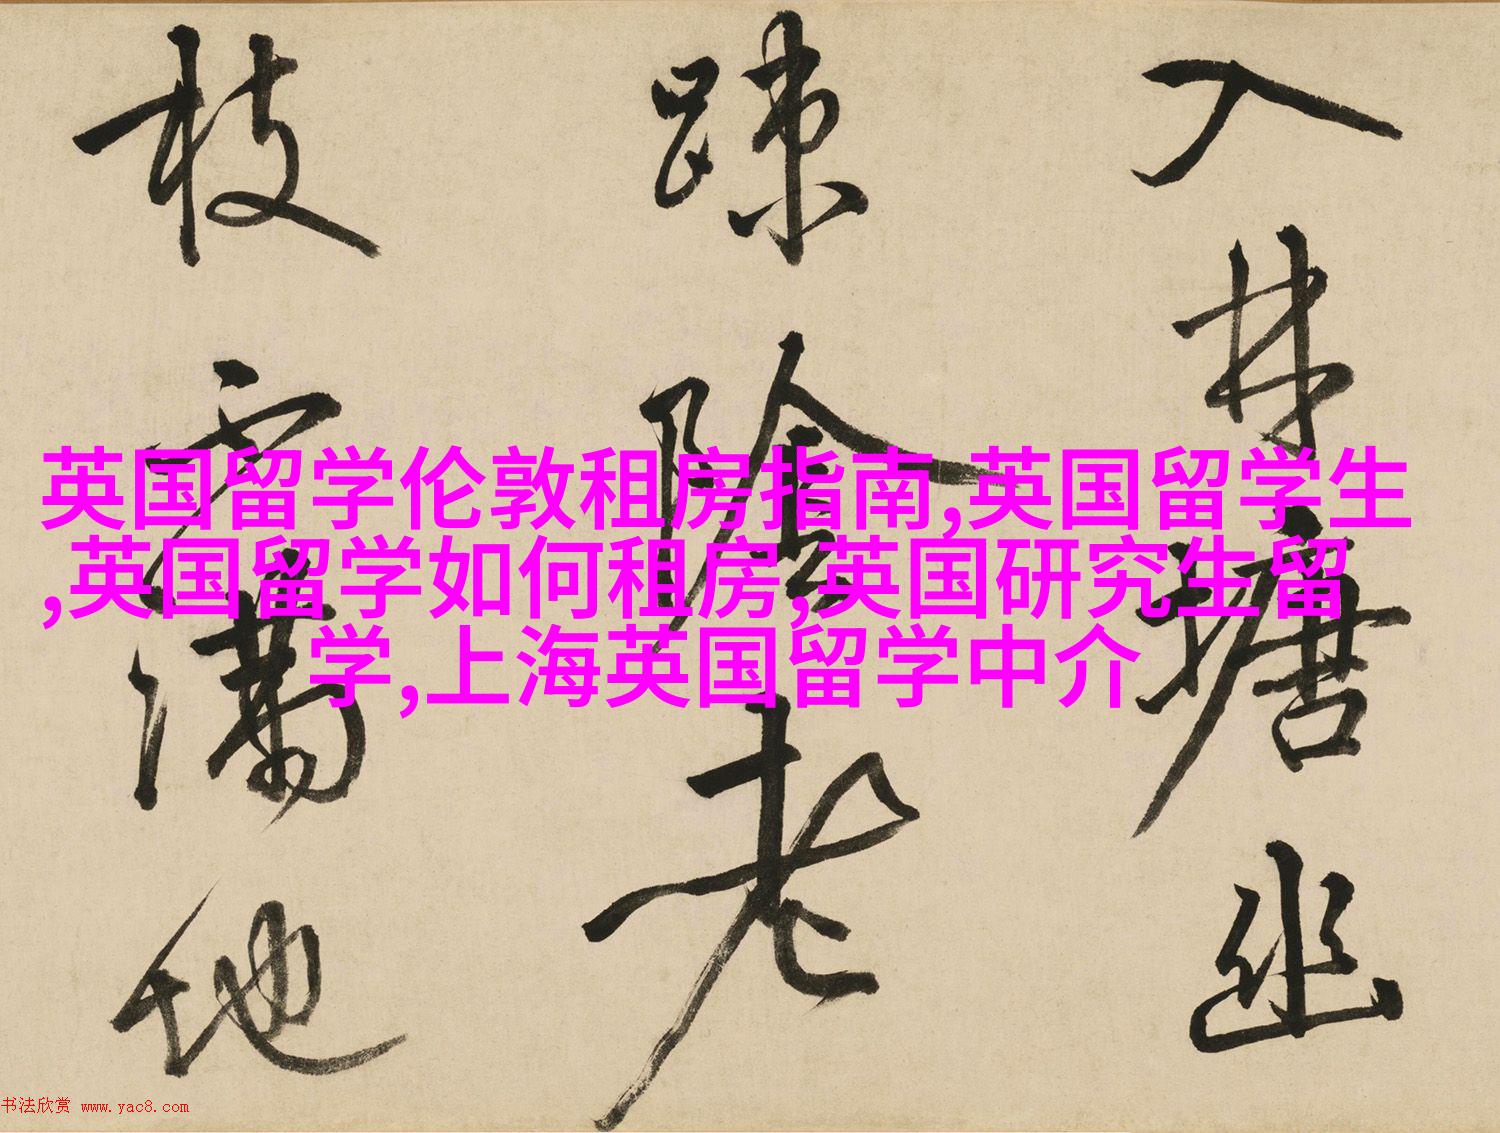 入林塘幽
踈陰老
枝滿地
英国留学伦敦租房指南,英国留学生
,英国留学如何租房,英国研究生留
学,上海英国留学中介
书法欣赏 www.yac8.com